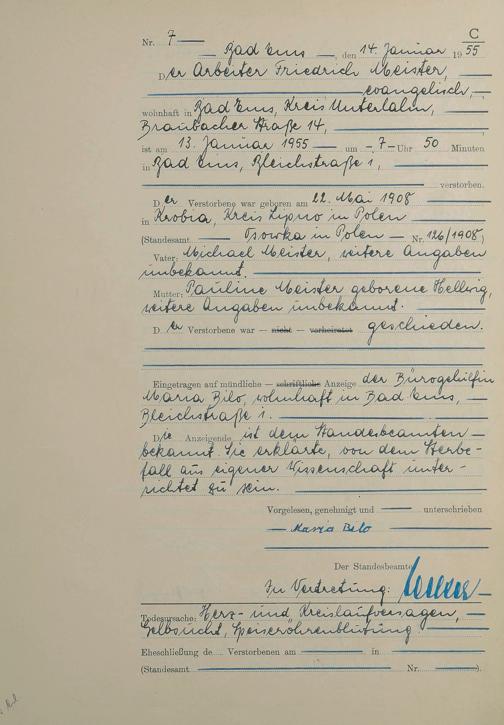 C
Nr. 7
Bad Ems, den 14. Januar 1955
Der Arbeiter Friedrich Meister,
evangelisch,
wohnhaft in Bad Ems, Kreis Unterlahn,
Braubacher Straße 14,
ist am 13. Januar 1955 um 7 Uhr 50 Minuten
in Bad Ems, Bleichstraße 1,
verstorben.
Der Verstorbene war geboren am 22. Mai 1908
in Krobia, Kreis Lipno in Polen
(Standesamt Osowka in Polen Nr. 126/1908)
Vater: Michael Meister, weitere Angaben
unbekannt.
Mutter: Pauline Meister geborene Hellwig,
weitere Angaben unbekannt.
Der Verstorbene war — nicht — verheiratet geschieden.
Eingetragen auf mündliche — schriftliche Anzeige der Bürogehilfin
Maria Bilo, wohnhaft in Bad Ems,
Bleichstraße 1.
Die Anzeigende ist dem Standesbeamten
bekannt. Sie erklärte, von dem Sterbe-
fall aus eigener Wissenschaft unter-
richtet zu sein.
Vorgelesen, genehmigt und unterschrieben
Maria Bilo
Der Standesbeamte
In Vertretung:
Todesursache: Herz- und Kreislaufversagen,
Gelbsucht, Speiseröhrenblutung
Eheschließung de Verstorbenen am in
(Standesamt Nr. ).